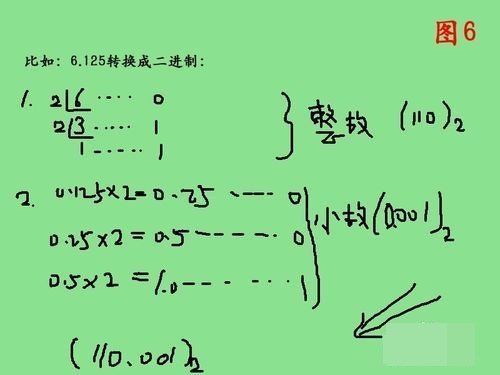 图6
比如：6.125转换成二进制：
1. 2 6 ····· 0
2 3 ···· 1
1 ----- 1
整数 (110)₂
2. 0.125×2=0.25 ---- 0
0.25×2=0.5 ------ 0
0.5×2=1.0 ------ 1
小数 (0.001)₂
(110.001)₂